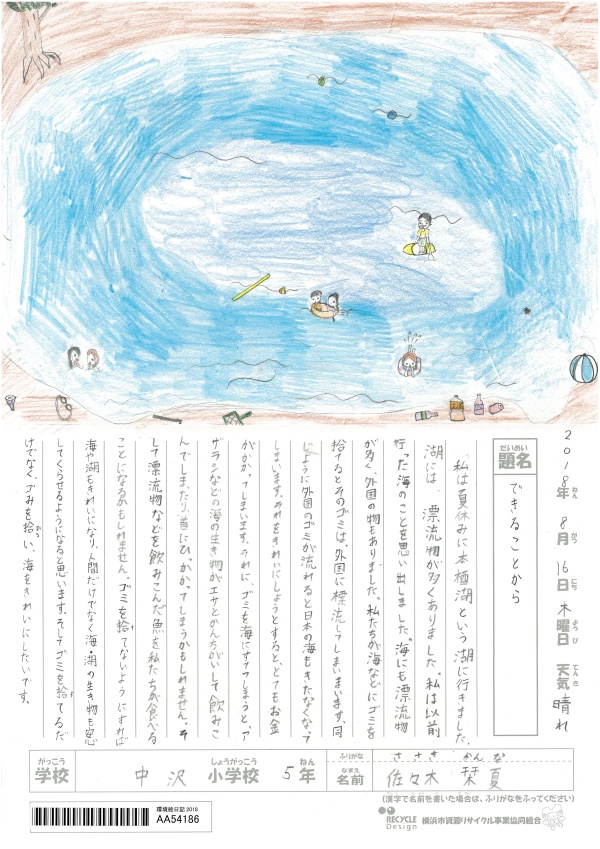 2018年ねん 8月がつ 16日にち 木曜日ようび 天気てんき 晴れ
題名だいめい できることから
私は夏休みに本栖湖という湖に行きました。
湖には、漂流物が多くありました。私は以前
行った海のことを思い出しました。海にも漂流物
が多く、外国の物もありました。私たちが海などにゴミを
捨てるとそのゴミは、外国に漂流してしまいます。同
じように外国のゴミが流れると日本の海もきたなくなって
しまいます。それをきれいにしようとすると、とてもお金
がかかってしまいます。それに、ゴミを海にすててしまうと、ア
ザラシなどの海の生き物がエサとかんちがいして飲みこ
んでしまったり、首にひっかかってしまうかもしれません。そ
して漂流物などを飲みこんだ魚を私たちが食べる
ことになるかもしれません。ゴミを捨てないようにすれば
海や湖もきれいになり、人間だけでなく海・湖の生き物も安心
してくらせるようになると思います。そしてゴミを捨てるだ
けでなく、ゴミを拾い、海をきれいにしたいです。
学校がっこう 中沢 小学校しょうがっこう 5年ねん
ふりがな ささき かんな
名前なまえ 佐々木 栞夏
(漢字で名前を書いた場合は、ふりがなをふってください)
環境絵日記 2018
AA54186
RECYCLE Design 横浜市資源リサイクル事業協同組合